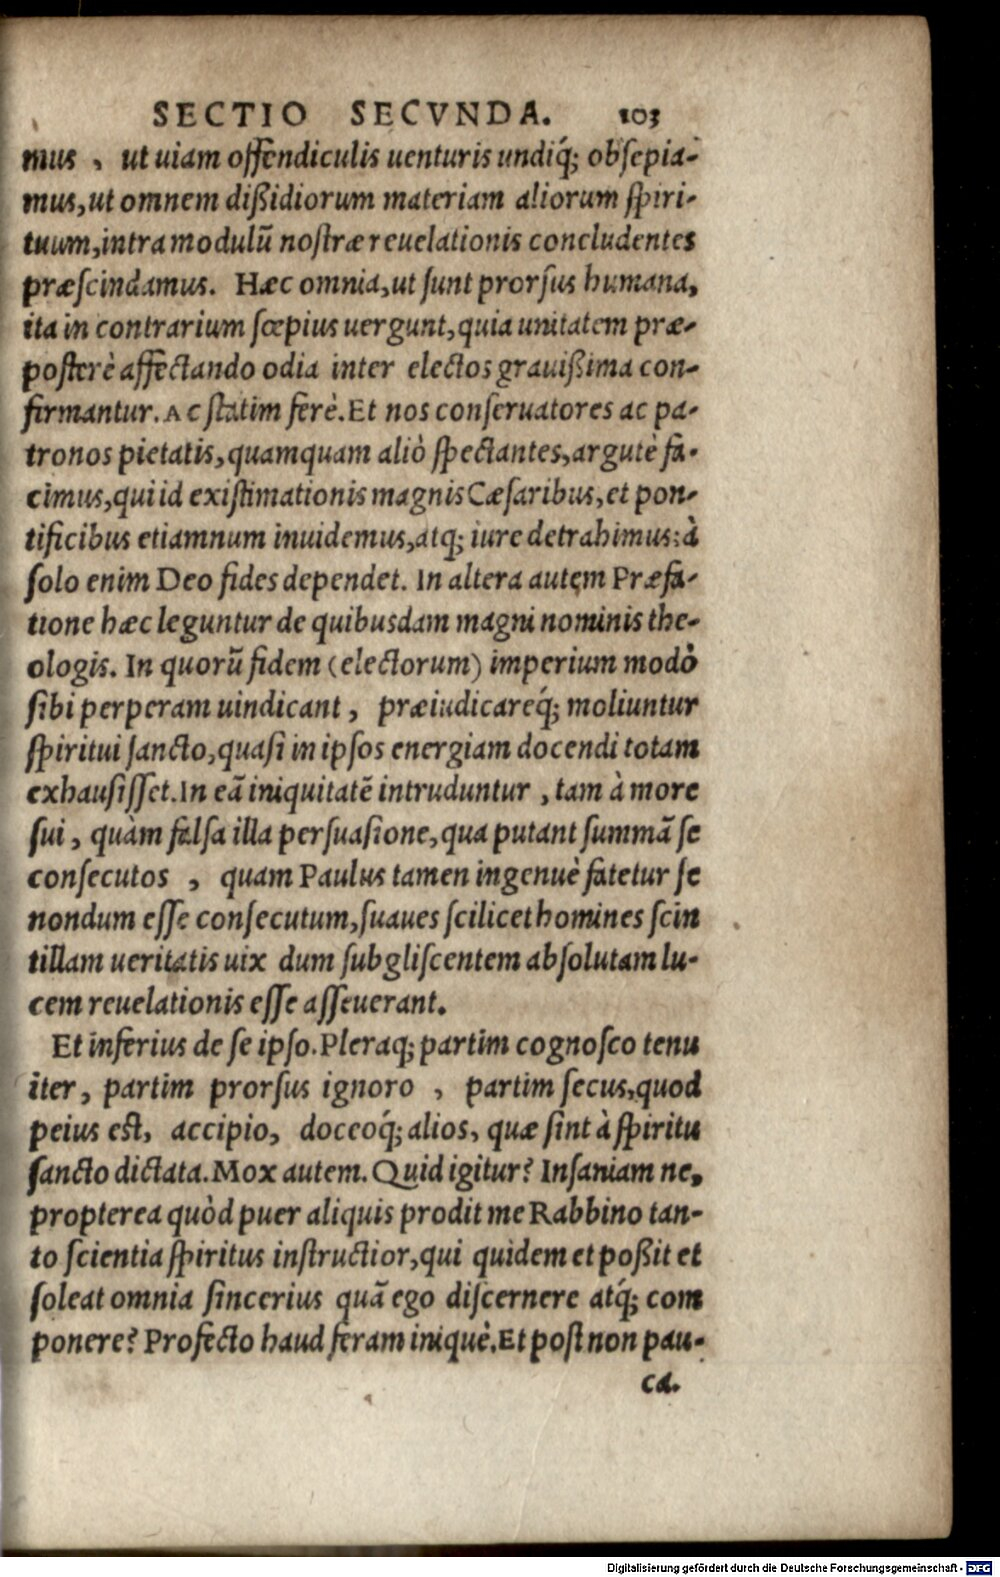 SECTIO SECVNDA. 103
mus , ut uiam offendiculis uenturis undiq́; obsepia-
mus, ut omnem dißidiorum materiam aliorum spiri-
tuum, intra modulũ nostræ reuelationis concludentes
præscindamus. Hæc omnia, ut sunt prorsus humana,
ita in contrarium sœpius uergunt, quia unitatem præ-
posterè affectando odia inter electos grauißima con-
firmantur. Ac statim ferè. Et nos conseruatores ac pa-
tronos pietatis, quamquam aliò spectantes, argutè fa-
cimus, qui id existimationis magnis Cæsaribus, et pon-
tificibus etiamnum inuidemus, atq; iure detrahimus: à
solo enim Deo fides dependet. In altera autem Præfa-
tione hæc leguntur de quibusdam magni nominis the-
ologis. In quorũ fidem (electorum) imperium modò
sibi perperam uindicant , præiudicareq́; moliuntur
spiritui sancto, quasi in ipsos energiam docendi totam
exhausisset. In eã iniquitatẽ intruduntur , tam à more
sui , quàm falsa illa persuasione, qua putant summã se
consecutos , quam Paulus tamen ingenuè fatetur se
nondum esse consecutum, suaues scilicet homines scin
tillam ueritatis uix dum subgliscentem absolutam lu-
cem reuelationis esse asseuerant.
Et inferius de se ipso. Pleraq; partim cognosco tenu
iter, partim prorsus ignoro , partim secus, quod
peius est, accipio, doceoq́; alios, quæ sint à spiritu
sancto dictata. Mox autem. Quid igitur? Insaniam ne,
propterea quòd puer aliquis prodit me Rabbino tan-
to scientia spiritus instructior, qui quidem et poßit et
soleat omnia sincerius quã ego discernere atq́; com
ponere? Profecto haud feram iniquè. Et post non pau-
ca.
Digitalisierung gefördert durch die Deutsche Forschungsgemeinschaft - DFG